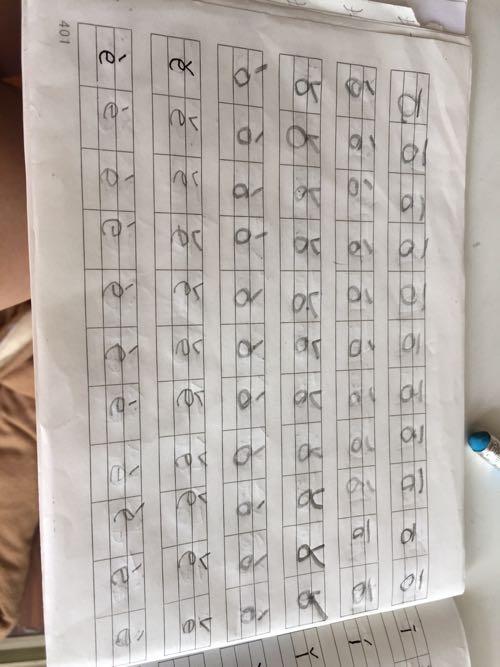 ō ō ō ō ō ō ō ō ō ō ō
ó ó ó ó ó ó ó ó ó ō ō
ǒ ǒ ǒ ǒ ǒ ǒ ǒ ǒ ǒ ǒ ǒ
ò ò ò ò ò ò ò ò ò ò ò
ě ě ě ě ě ě ě ě ě ě ě
è è è è è è è è è è è
401
ī
í
ǐ